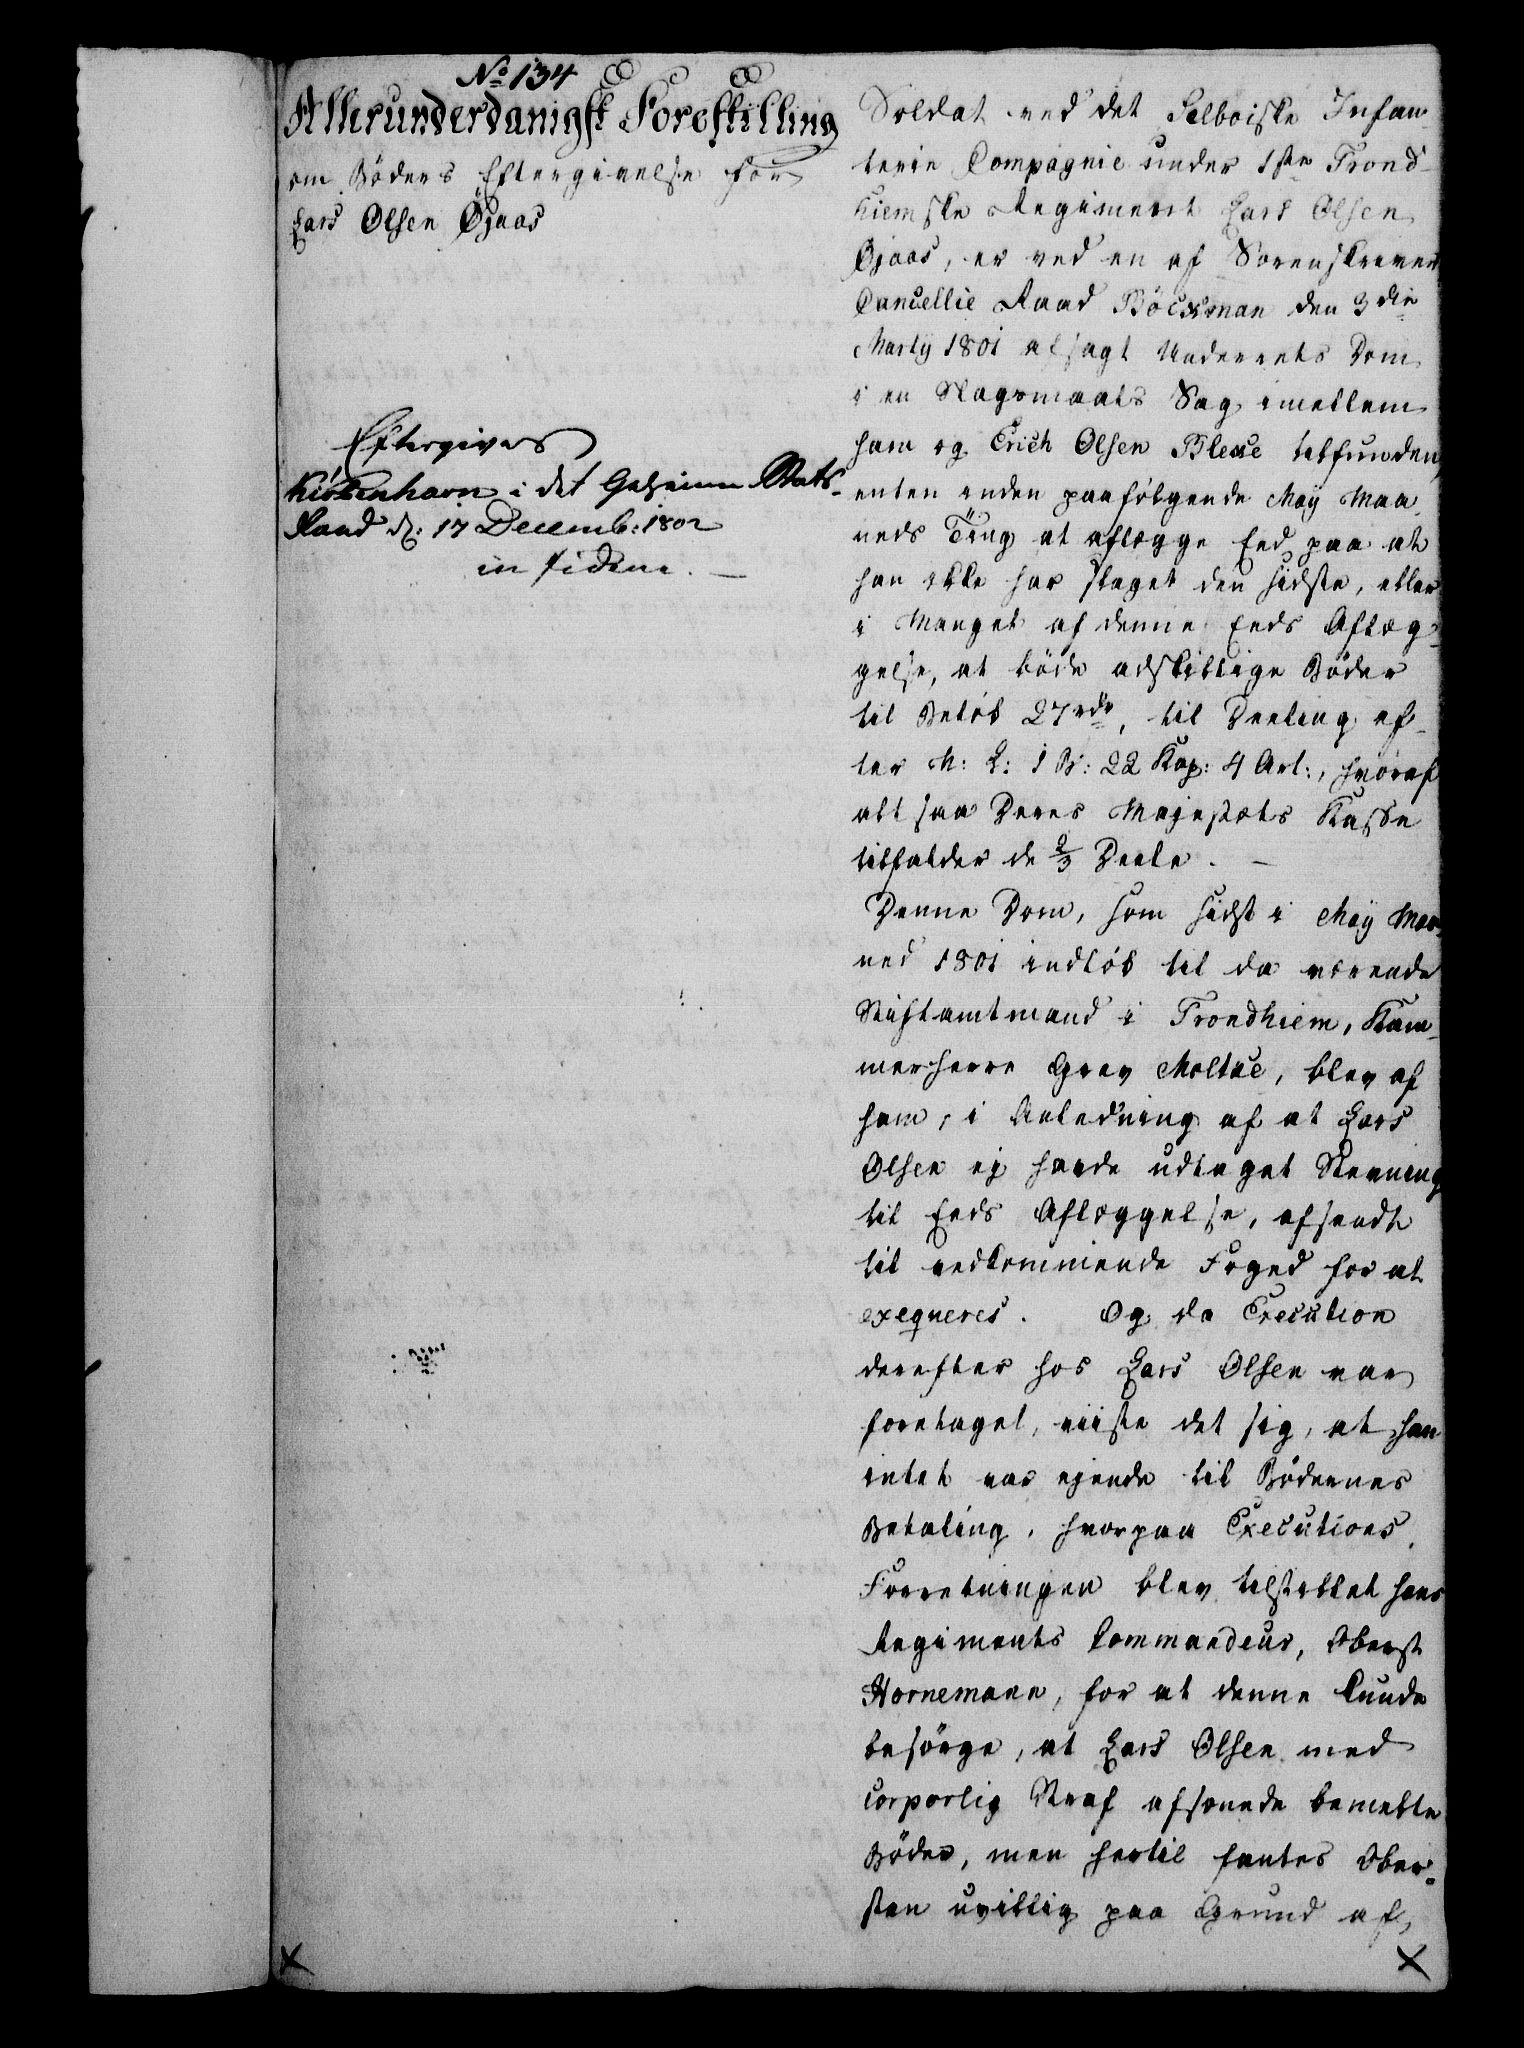 No 134
Allerunderdanigst Forestilling
om Böders Eftergivelse for
Lars Olsen Öjaas
Eftergives
Kiöbenhavn i det Geheime Stats-
Raad d: 17 Decemb: 1802
in fidem. —
Soldat ved det Selboiske Infan-
terie Compagnie under 1ste Trond-
hiemske Regiment Lars Olsen
Öjaas, er ved en af Sorenskriver
Cancellie Raad Böckman den 3die
Martij 1801 afsagt Underrets Dom
i en Slagsmaals Sag imellem
ham og Erich Olsen Blexe tilfunden,
enten inden paafölgende Maÿ Maa-
neds Ting at aflægge Eed paa at
han ikke har slaget den sidste, eller
i Mangel af denne Eeds Aflæg-
gelse, at böde adskillige Böder
til Belöb 27 rdr, til Deeling ef-
ter N: L: 1 B: 22 Kap: 4 Art:, hvoraf
altsaa Deres Majestæts Kasse
tilfalder de 2/3 Deele. —
Denne Dom, som sidst i Maÿ Maa-
ned 1801 indlöb til da værende
Stiftamtmand i Trondhiem, Kam-
merherre Grev Moltke, blev af
ham, i Anledning af at Lars
Olsen ej havde udtaget Stevning
til Eeds Aflæggelse, afsendt
til vedkommende Foged for at
exeqveres. Og da Execution
derefter hos Lars Olsen var
foretaget, viiste det sig, at han
intet var ejende til Bödernes
Betaling, hvorpaa Executions
Forretningen blev tilstillet hans
Regiments Commandeur, Oberst
Hornemann, for at denne kunde
besörge, at Lars Olsen med
corporlig Straf afsonede bemelte
Böder, men hertil fantes Ober-
sten uvillig paa Grund af